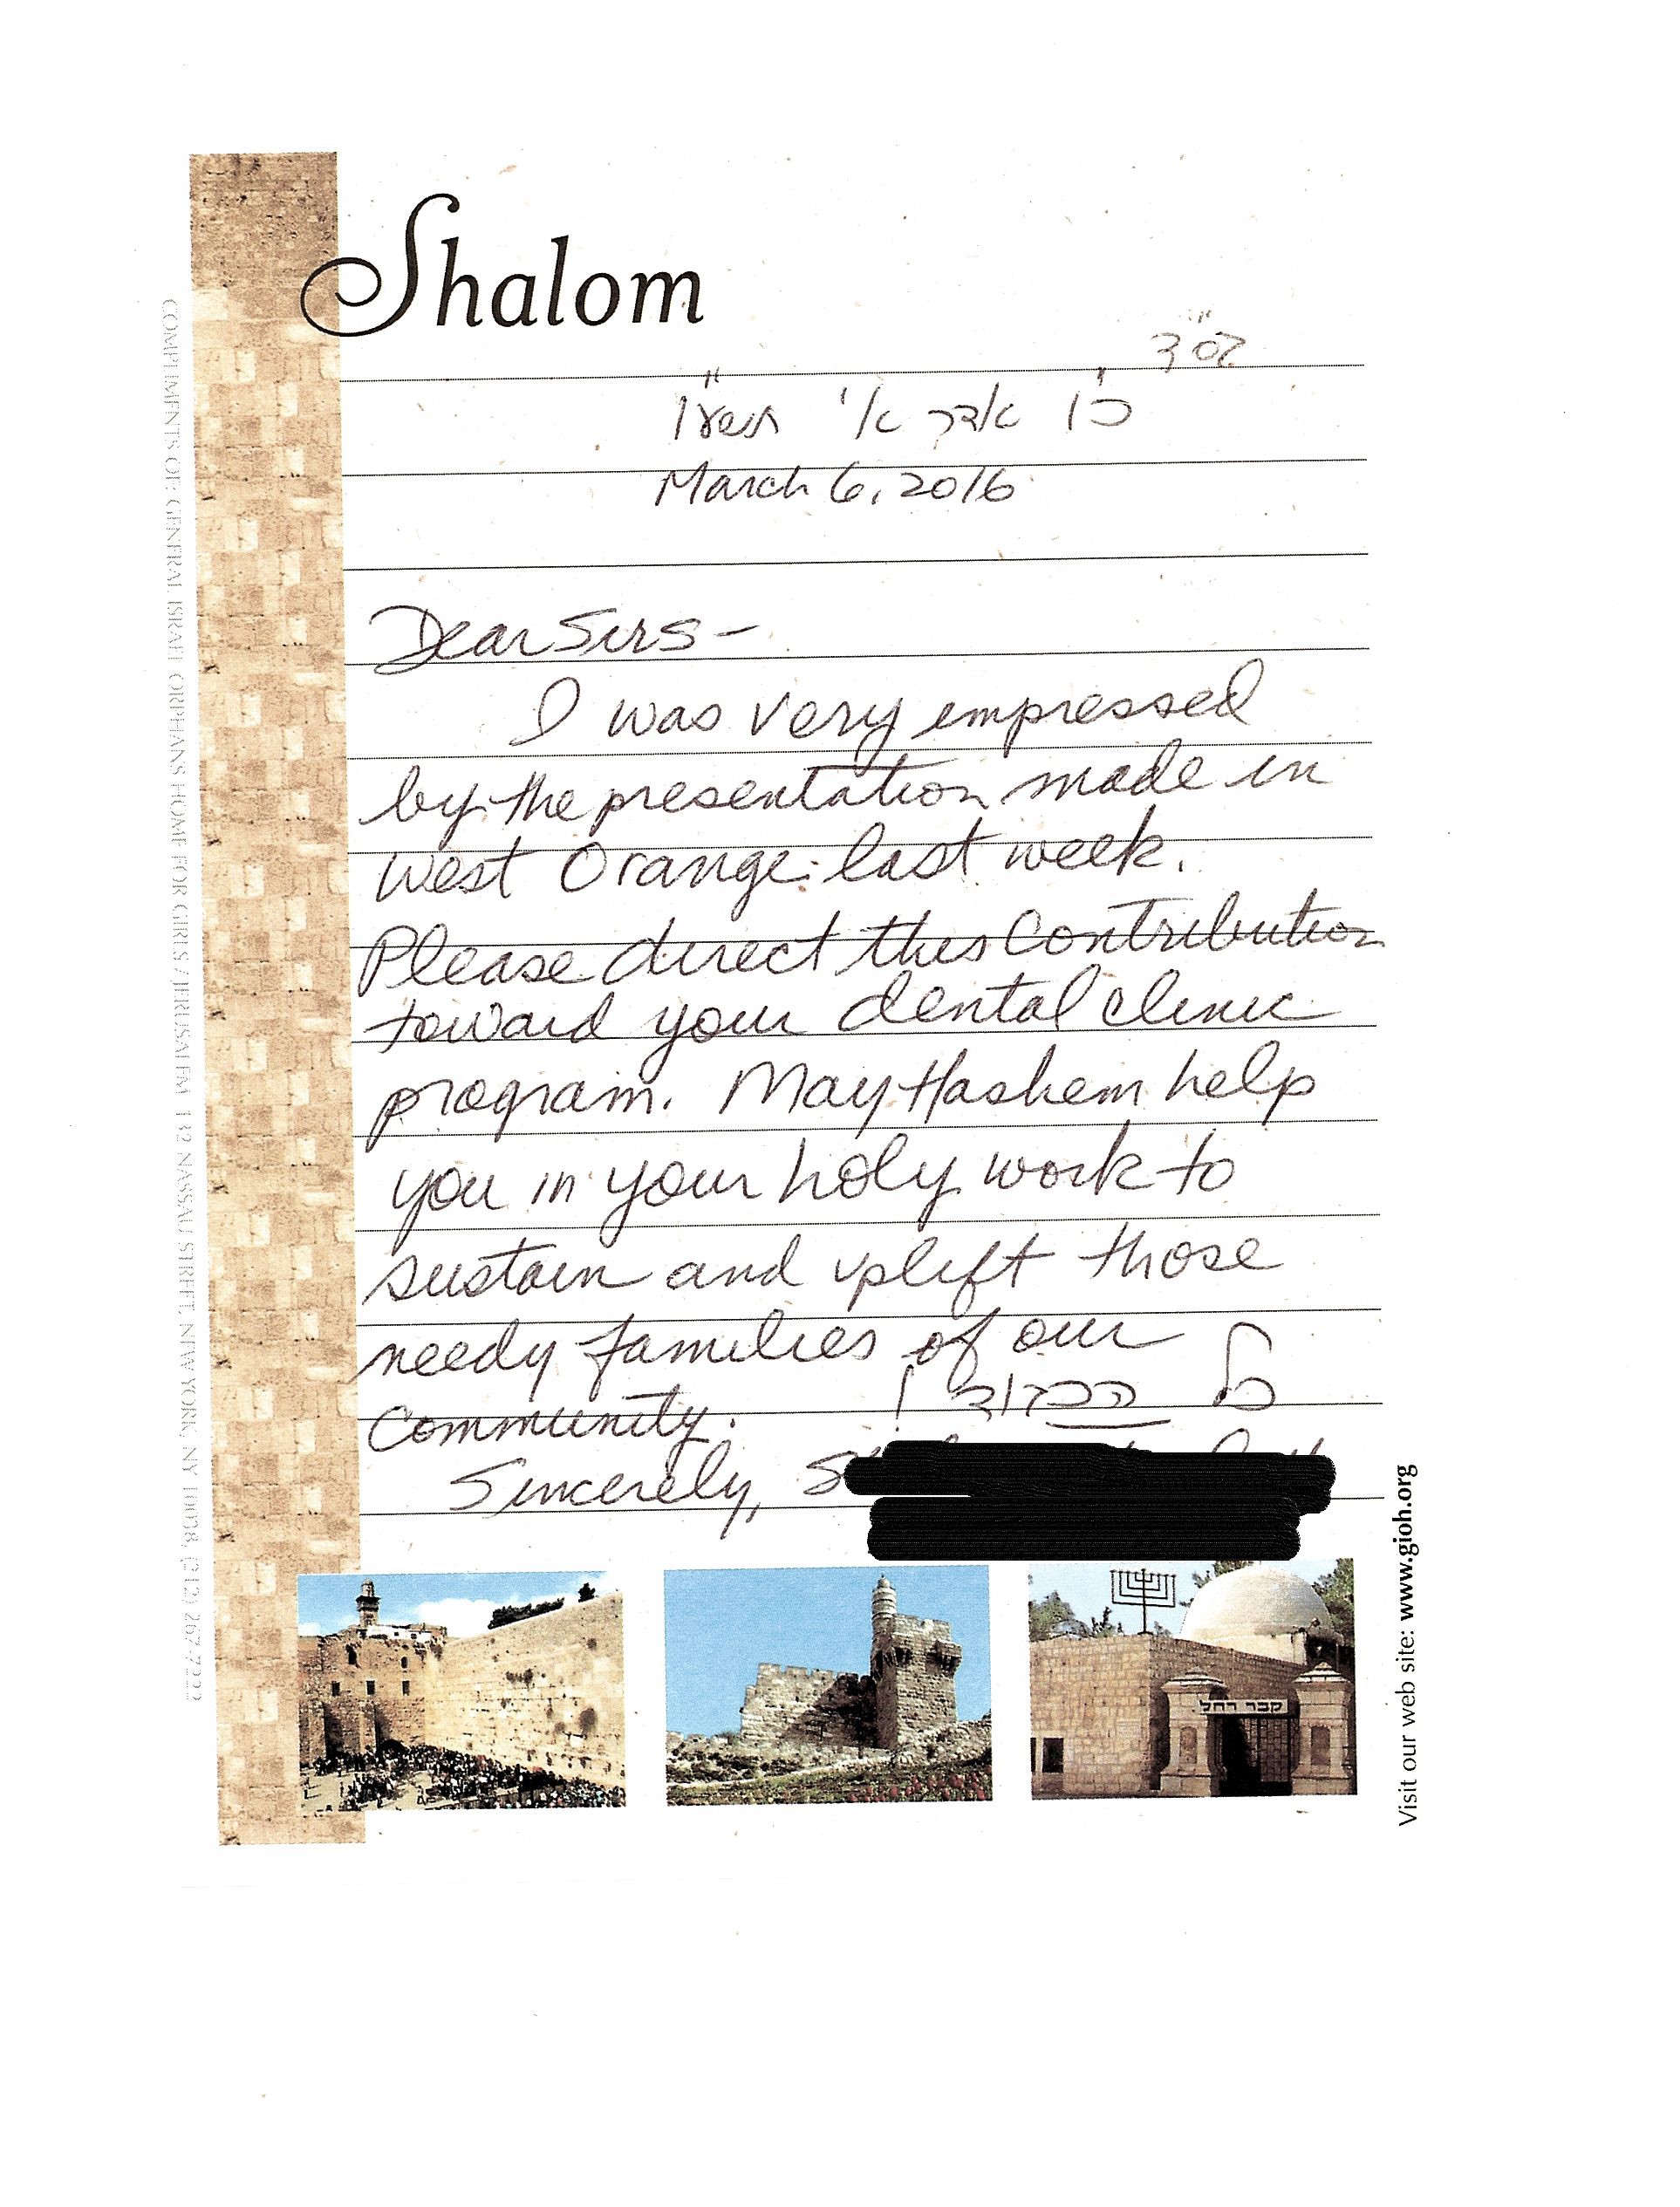 Shalom
בס״ד
כ׳ו אדר א׳ תשע״ו
March 6, 2016
Dear Sirs -
I was very impressed
by the presentation made in
West Orange last week.
Please direct this contribution
toward your dental clinic
program. May Hashem help
you in your holy work to
sustain and uplift those
needy families of our
Community. כל הכבוד !
Sincerely,
קבר רחל
COMPLIMENTS OF: GENERAL ISRAEL ORPHANS HOME FOR GIRLS / JERUSALEM 132 NASSAU STREET, NEW YORK, NY 10038, (212) 267-7222
Visit our web site: www.gioh.org